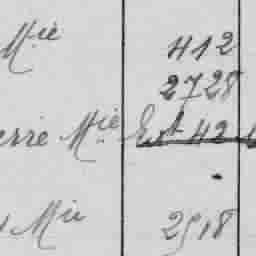 Mie 412
2728
erre Mie Ext 42
Mie 2518